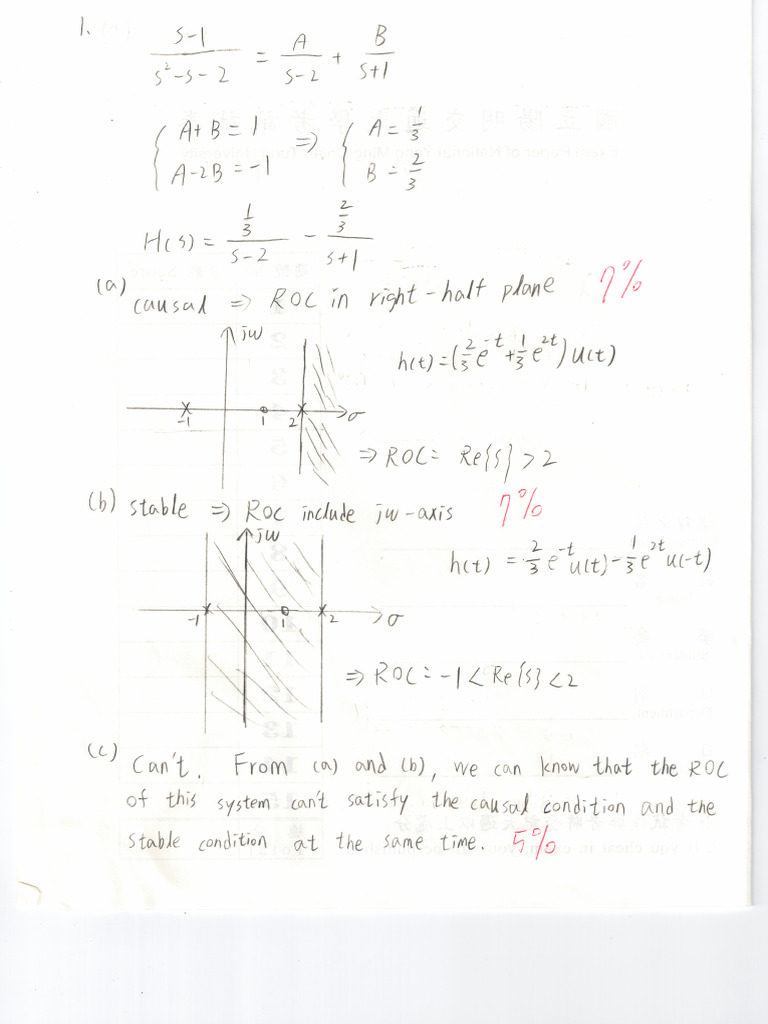 1. (s-1)/(s²-s-2) = A/(s-2) + B/(s+1)
{ A+B = 1 ⇒ { A = 1/3
{ A-2B = -1 { B = 2/3
H(s) = (1/3)/(s-2) - (2/3)/(s+1)
(a) causal ⇒ ROC in right-half plane 7%
jw
h(t) = (2/3 e^-t + 1/3 e^2t) u(t)
-1 1 2 σ
⇒ ROC = Re{s} > 2
(b) stable ⇒ ROC include jw-axis 7%
jw
h(t) = 2/3 e^-t u(t) - 1/3 e^2t u(-t)
-1 1 2 σ
⇒ ROC = -1 < Re{s} < 2
(c) Can't. From (a) and (b), we can know that the ROC
of this system can't satisfy the causal condition and the
stable condition at the same time. 5%